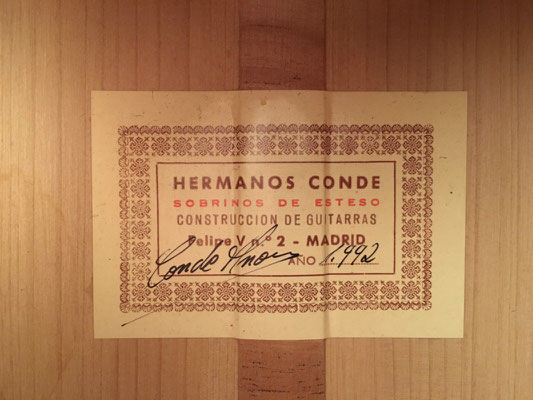 HERMANOS CONDE
SOBRINOS DE ESTESO
CONSTRUCCION DE GUITARRAS
Felipe V n.º 2 - MADRID
Conde Hnos AÑO 1.992